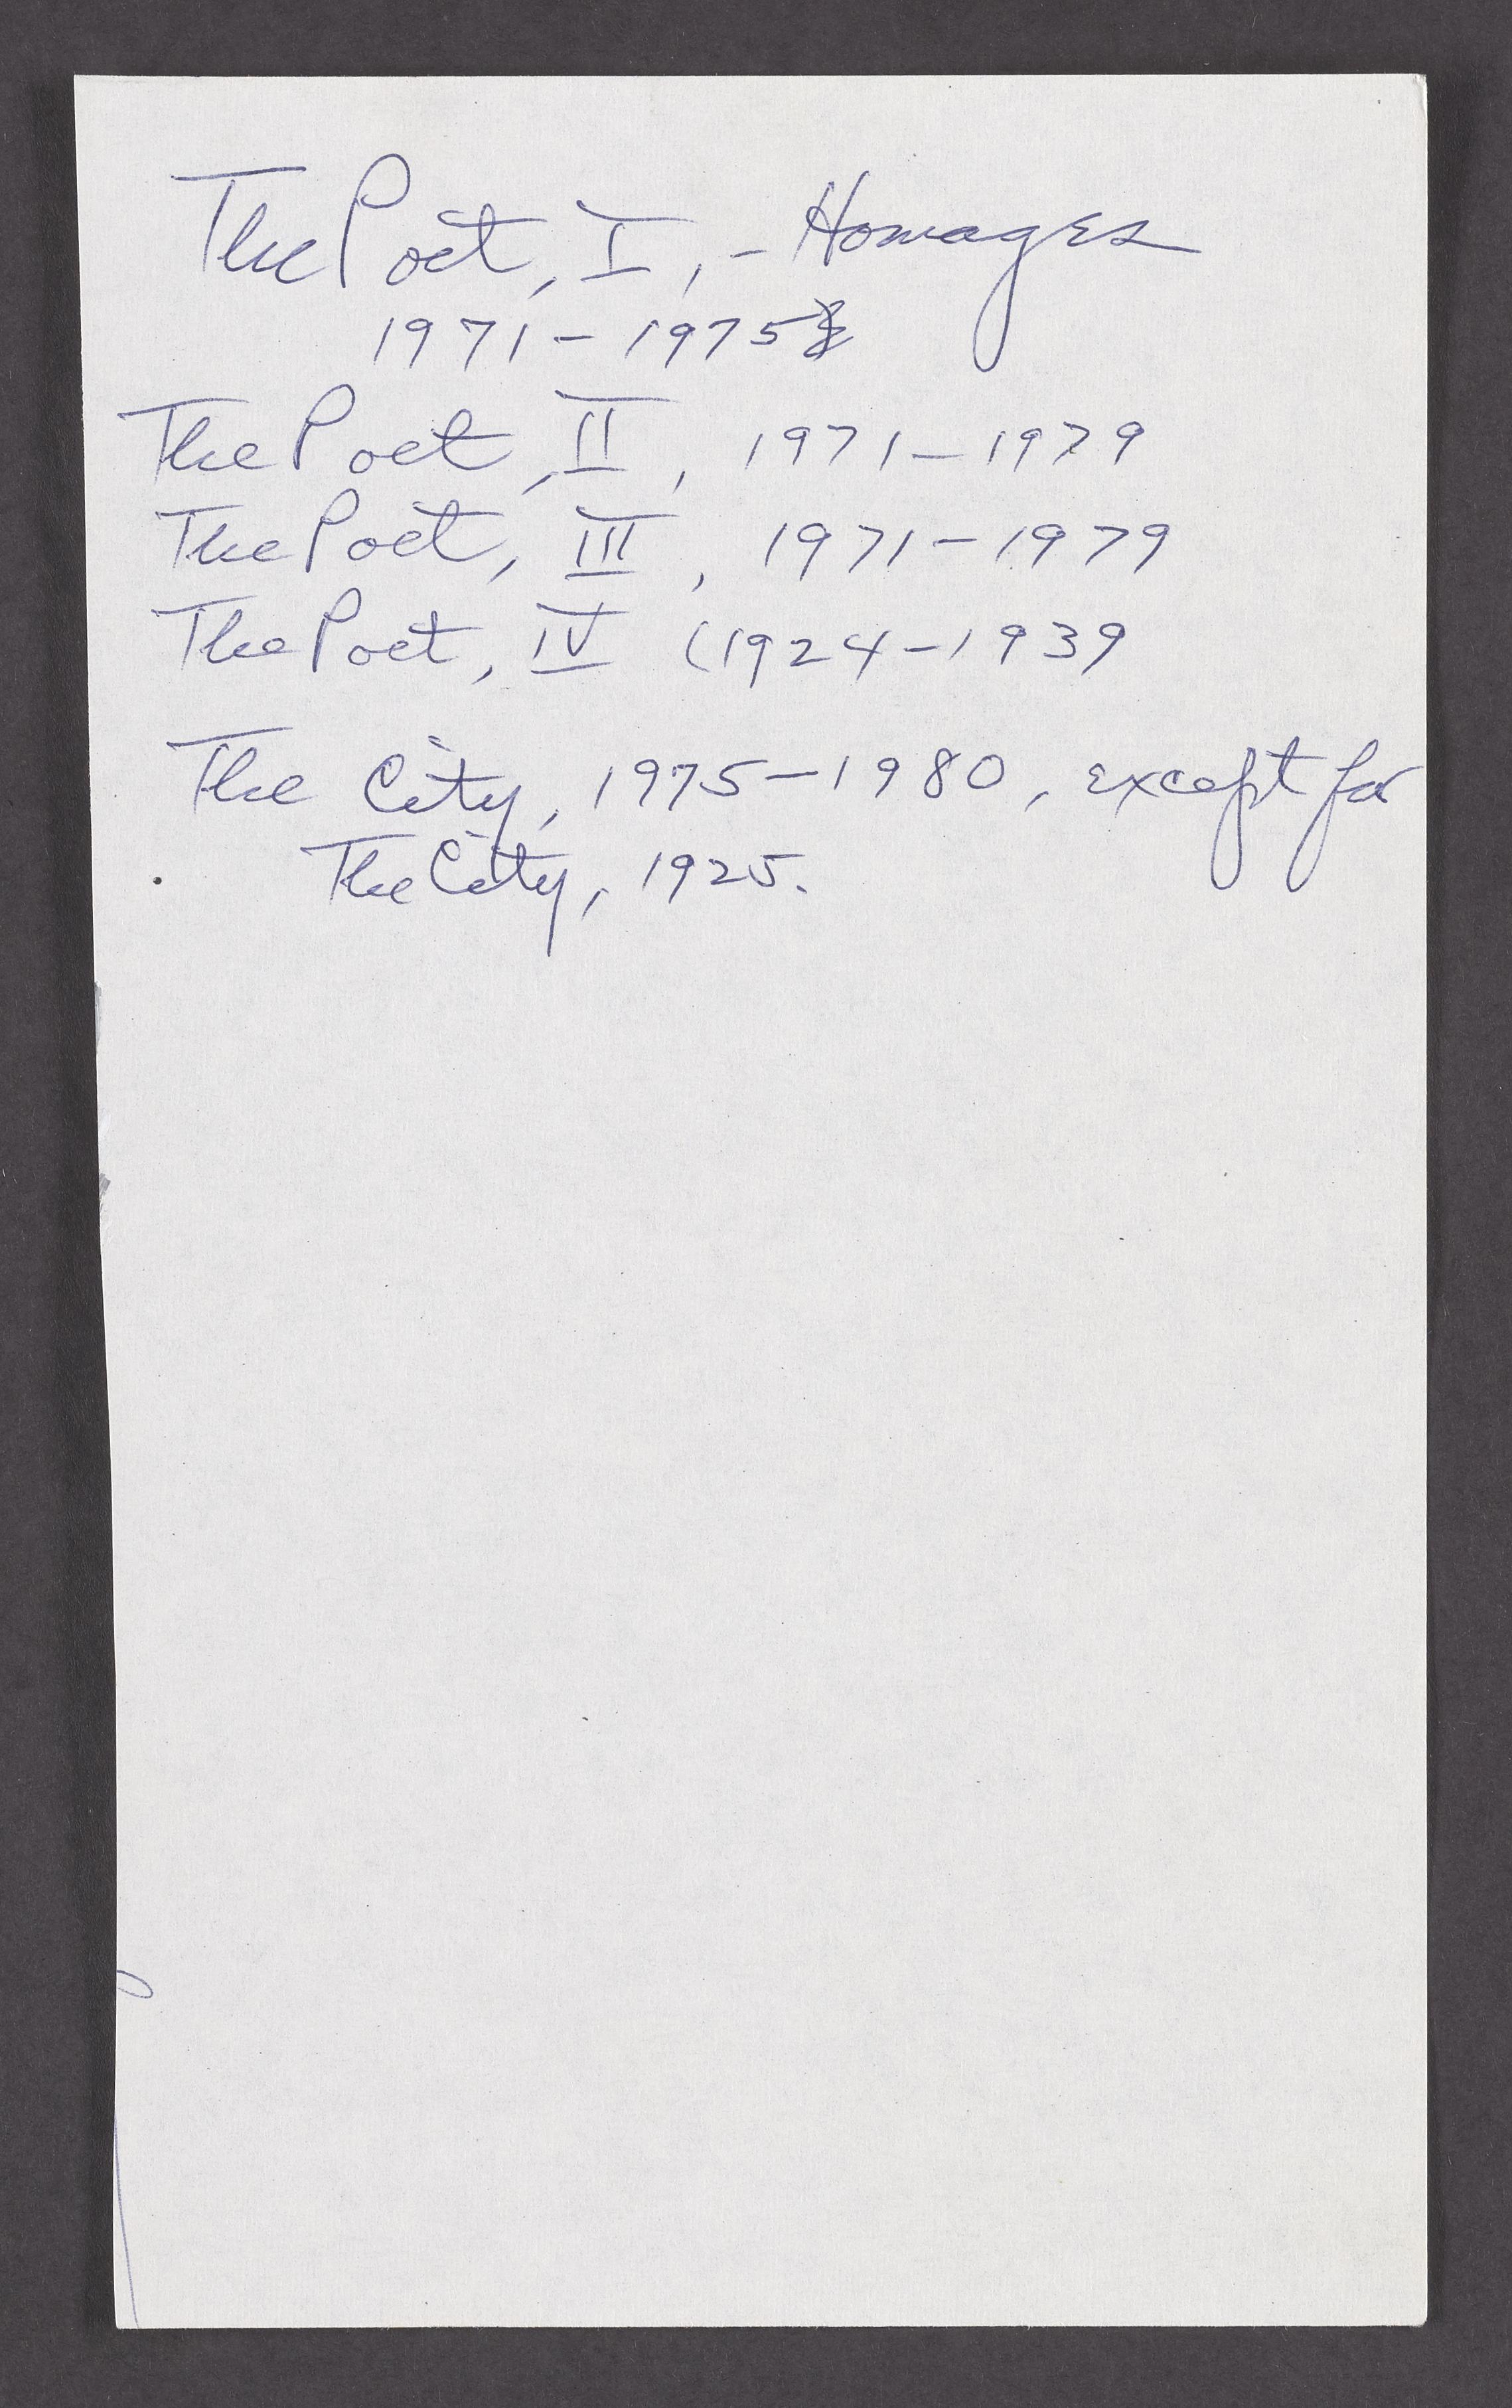 The Poet, I, - Homages
1971-1975
The Poet, II, 1971-1979
The Poet, III, 1971-1979
The Poet, IV (1924-1939
The City, 1975-1980, except for
The City, 1925.